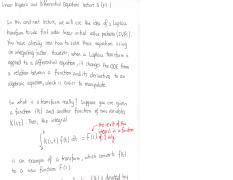 Linear Algebra and Differential Equations Lecture
In this and next lecture, we will use the idea of a Laplace
transform to solve first order linear initial value problems (IVPs).
You have already seen how to solve these equations using
an integrating factor. However, when a Laplace transform is
applied to a differential equation, it changes the ODE from
a relation between a function and its derivatives to an
algebraic equation, which is easier to manipulate.
So what is a transform really? Suppose you are given
a function f(t) and another function of two variables
K(s,t). Then, the integral
the result of this
integral is a function
of s only
∫ K(s,t) f(t) dt = F(s)
is an example of a transform, which converts f(t)
to a new function F(s).